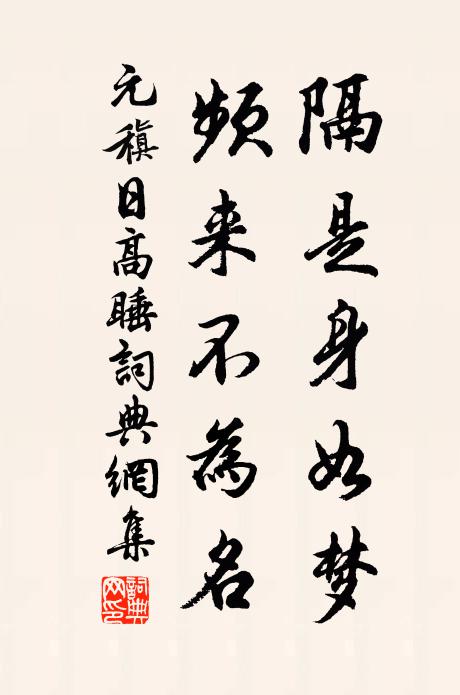 隔是身如梦
频来不為名
元稹日高睡詞典網集
詞典网印